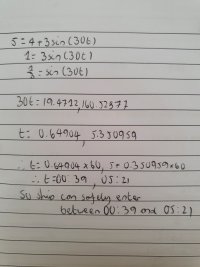 5 = 4 + 3sin(30t)
1 = 3sin(30t)
1/3 = sin(30t)
30t = 19.4712, 160.52877
t = 0.64904, 5.350959
∴ t = 0.64904 × 60, 5 + 0.350959 × 60
∴ t = 00:39, 05:21
So ship can safely enter
between 00:39 and 05:21